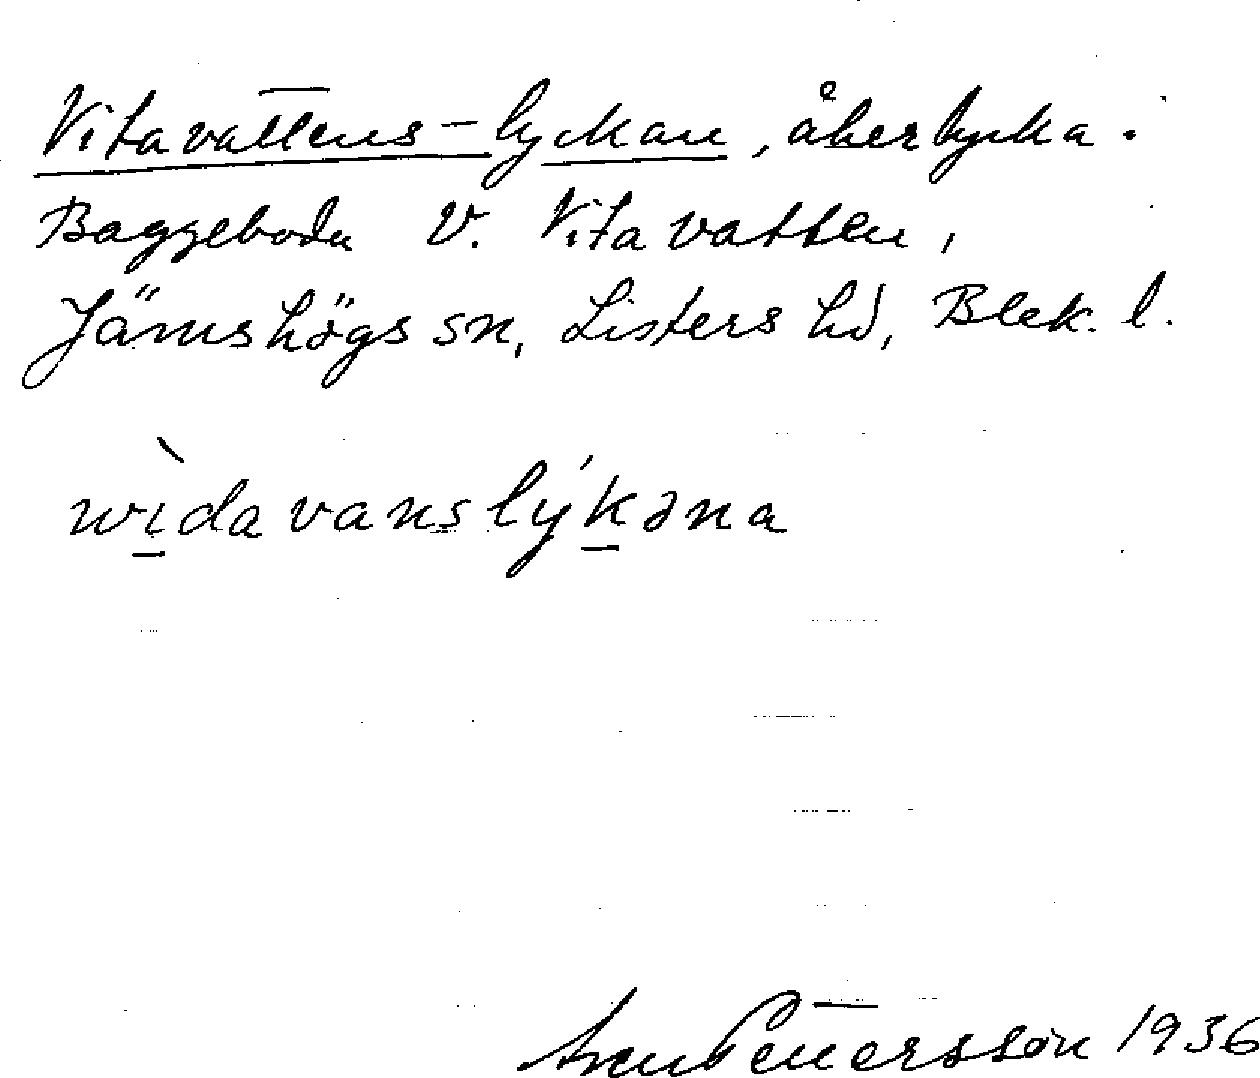 Vitavattens-lyckan, åkerlycka.
Baggeboda V. Vitavatten,
Jämshögs sn, Listers hd, Blek. l.
wìdavanslýkəna
Pettersson 1936